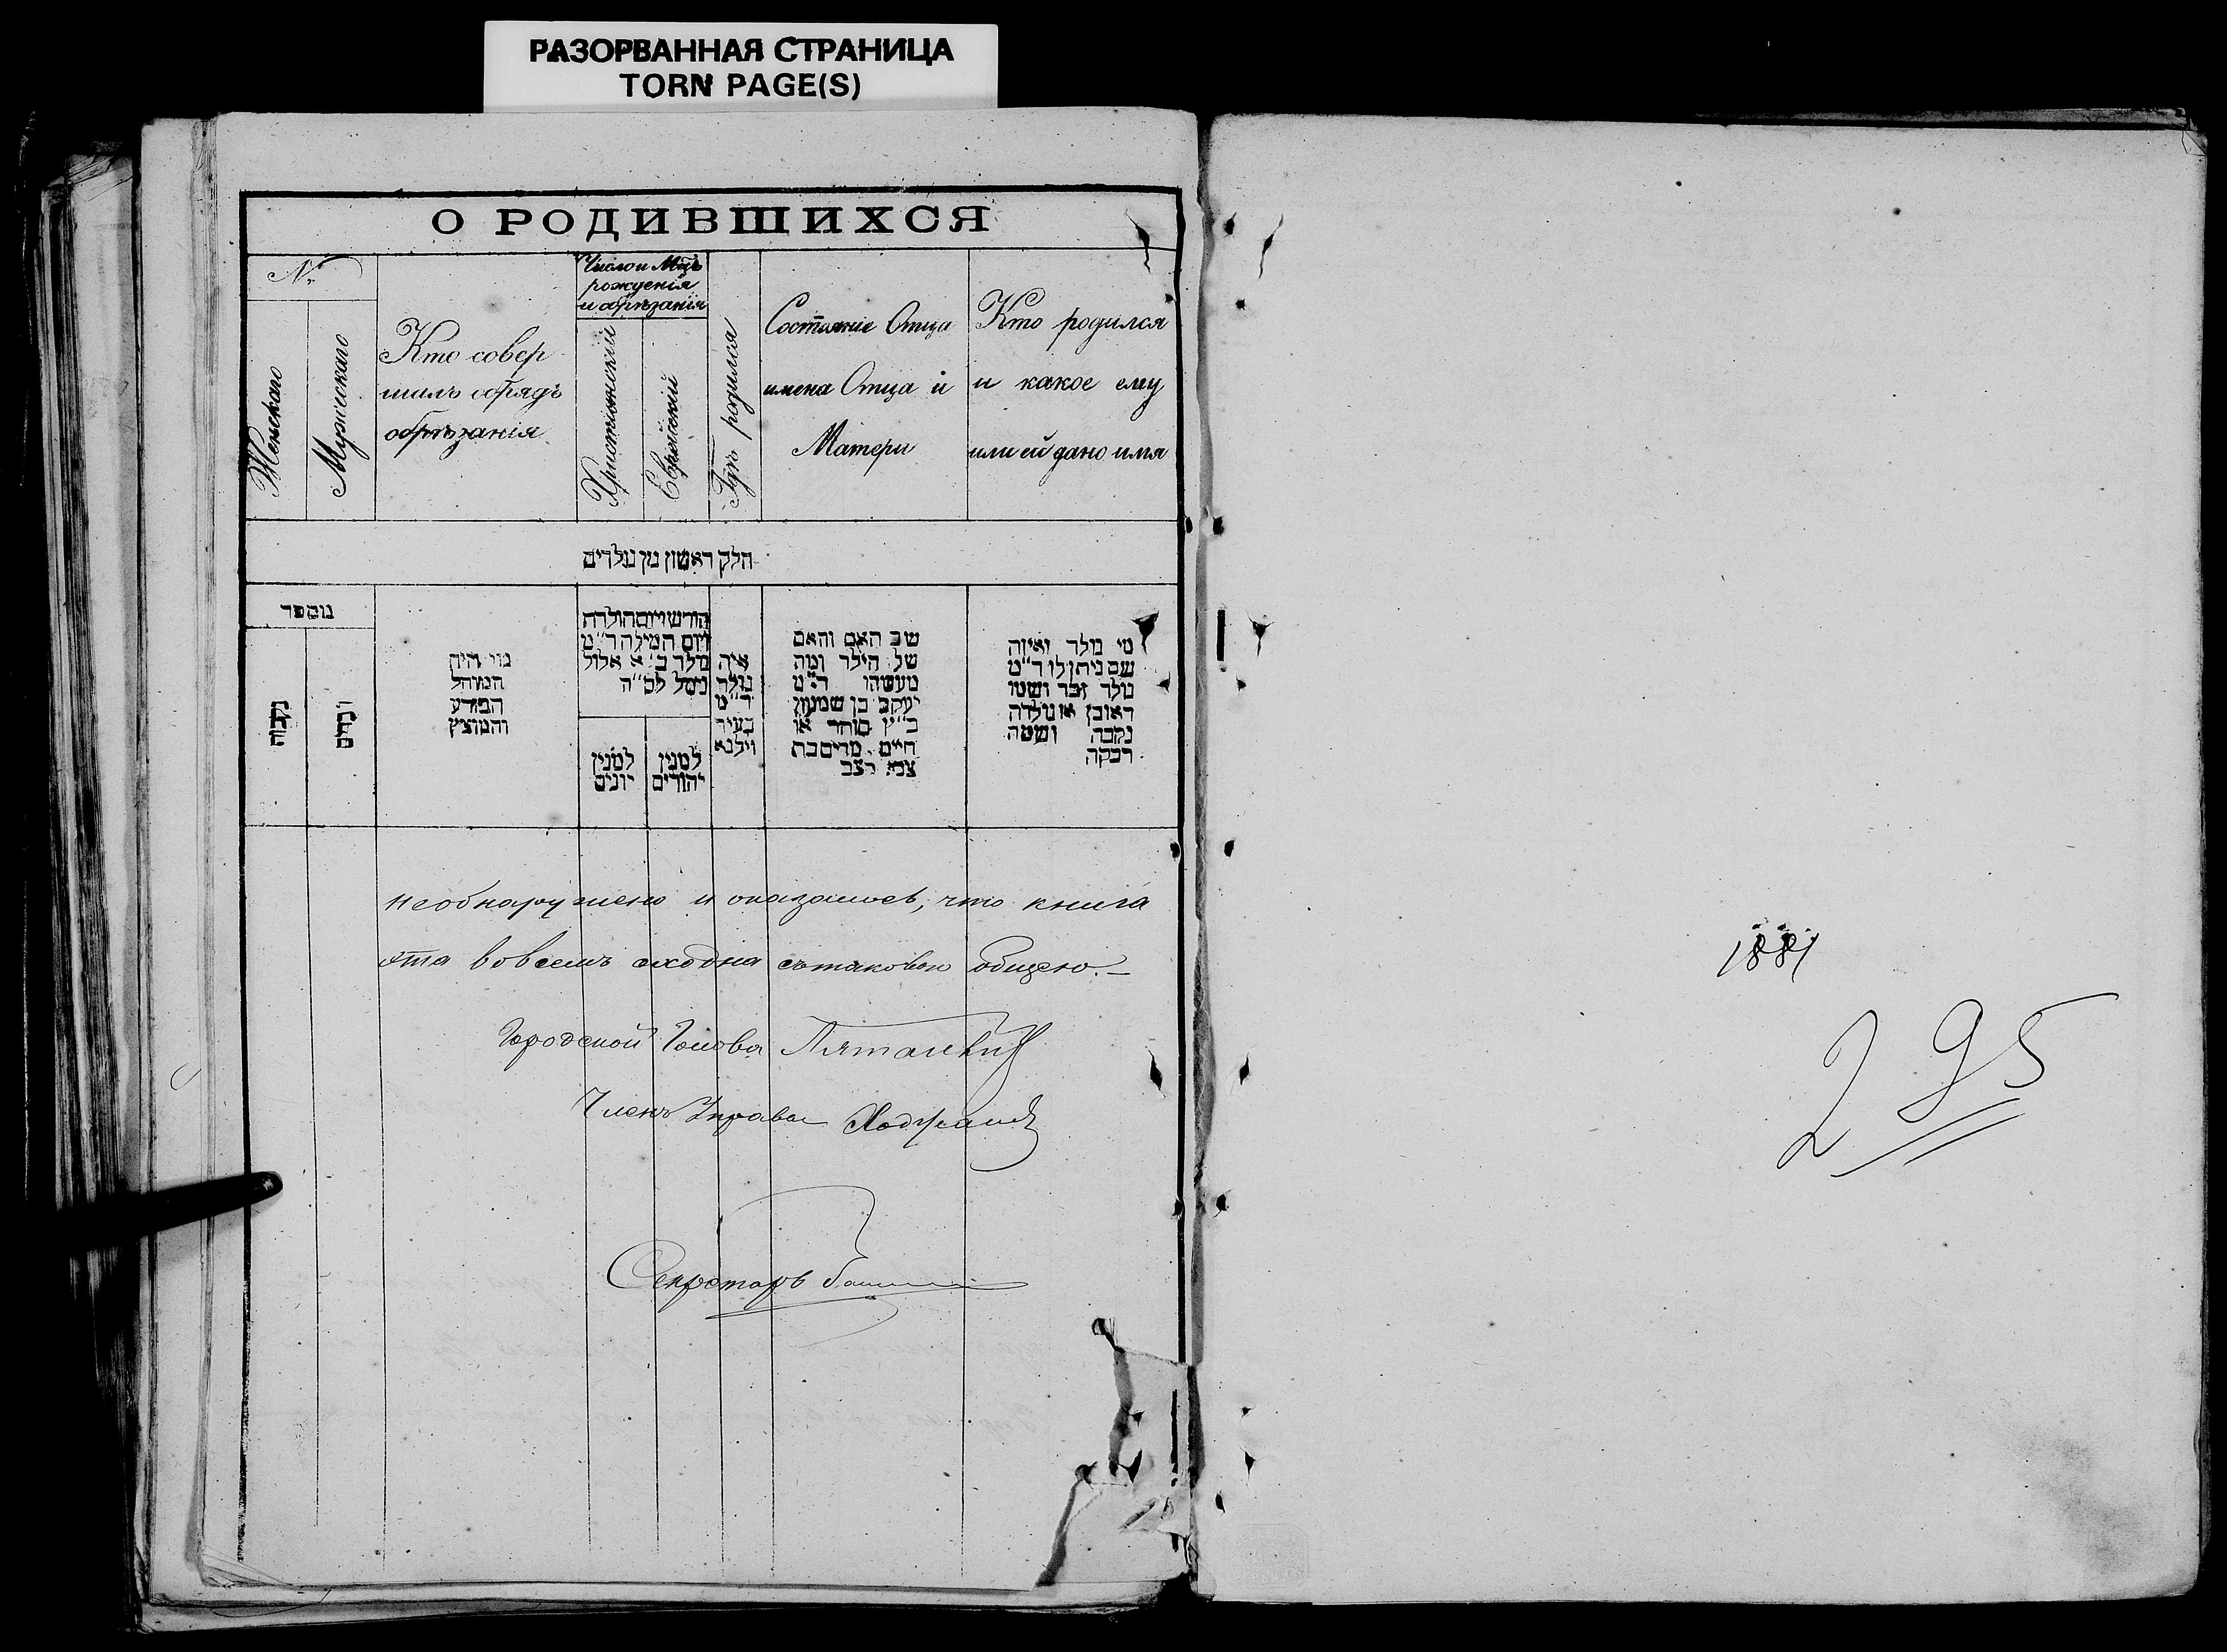 РАЗОРВАННАЯ СТРАНИЦА
TORN PAGE(S)
О РОДИВШИХСЯ
№
Женскаго
Мужескаго
Кто совер
шилъ обрядъ
обрѣзанія
Число и Мцъ
рожденія
и обрѣзанія
Христіянскій
Еврейскій
Гдѣ родился
Состояніе Отца
имена Отца и
Матери
Кто родился
и какое ему
или ей дано имя
חלק ראשון מן נולדים
מספר
נקבות
זכרים
מי היה
המוהל
הפורע
והמוצץ
חודש ויום הולדת
ויום המילה ד״מ
נולד ב׳ א אלול
נימל לח״ה
למנין
יונים
למנין
יהודים
איה
נולד
ד״מ
בעיר
ווילנא
שם האב והאם
של הילד ומה
מעשהו ד״מ
יעקב בן שמעון
כ״ץ סוחר או
חייט מרים בת
צבי
מי נולד ואיזה
שם ניתן לו ד״מ
נולד זכר ושמו
ראובן או נולדה
נקבה ושמה
רבקה
необнаружено и оказалось, что книга
эта вовсемъ сходна съ таковою общею.–
Городской Голова
Членъ Управы
Секретарь
1881
295